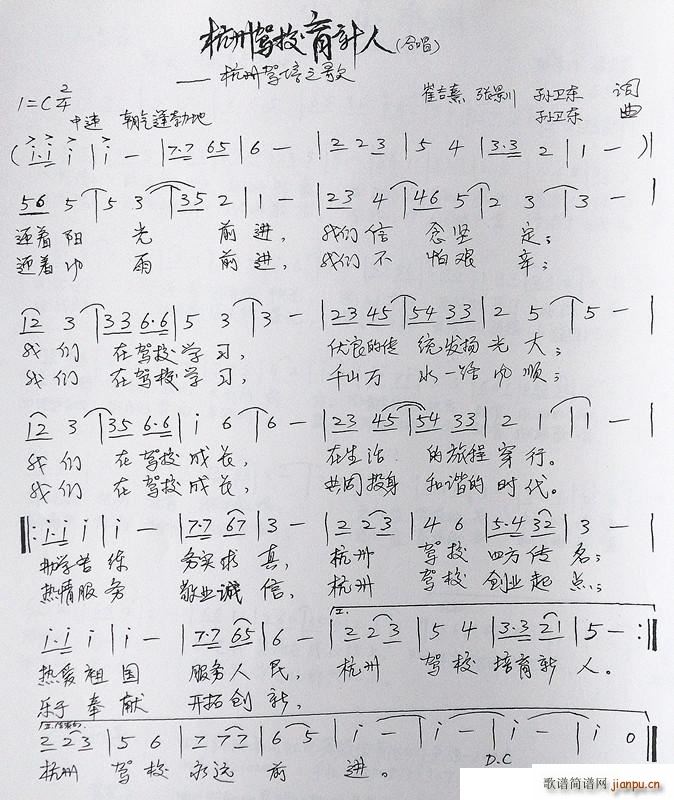 杭州驾校育新人(合唱)
——杭州驾培之歌
1=C 2/4
崔言熹 张景川 孙卫东 词
孙卫东 曲
中速 朝气蓬勃地
( i·i i | i - | 7·7 65 | 6 - | 2 23 | 5 4 | 3·3 2 | 1 - )|
56 5 | 5 3 | 35 2 | 1 - | 23 4 | 46 5 | 2 3 | 3 - |
迎着阳光前进, 我们信念坚定;
迎着风雨前进, 我们不怕艰辛;
12 3 | 33 6·6 | 5 3 | 3 - | 23 45 | 54 33 | 2 5 | 5 - |
我们在驾校学习, 优良的传统发扬光大;
我们在驾校学习, 千山万水一路风顺;
12 3 | 35 6·6 | i 6 | 6 - | 23 45 | 54 33 | 2 1 | 1 - |
我们在驾校成长, 在生活的旅程穿行。
我们在驾校成长, 共同投身和谐的时代。
|: i·i i | i - | 7·7 67 | 3 - | 2 23 | 4 6 | 5·4 32 | 3 - |
勤学苦练 务实求真, 杭州驾校四方传名;
热情服务 敬业诚信, 杭州驾校创业起点;
I.
i·i i | i - | 7·7 65 | 6 - | 2 23 | 5 4 | 3·3 21 | 5 - :|
热爱祖国 服务人民, 杭州驾校培育新人。
乐于奉献 开拓创新,
2 23 | 5 6 | 7 77 | 6 5 | i - | i - | i - | i 0 |
杭州驾校永远前进。
D.C
歌谱简谱网
jianpu.cn